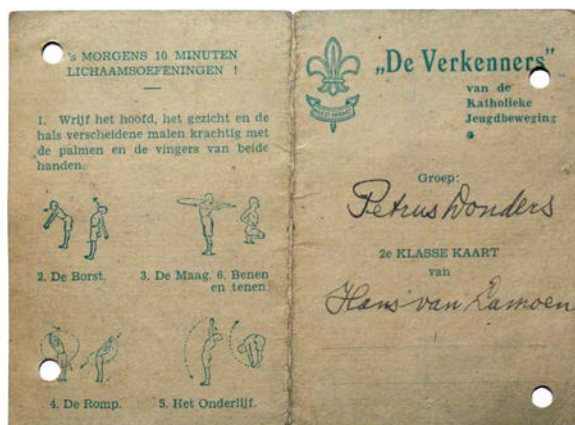 's MORGENS 10 MINUTEN
LICHAAMSOEFENINGEN !
1. Wrijf het hoofd, het gezicht en de
hals verscheidene malen krachtig met
de palmen en de vingers van beide
handen.
2. De Borst.
3. De Maag. 6. Benen
en tenen.
4. De Romp.
5. Het Onderlijf.
„De Verkenners"
van de
Katholieke
Jeugdbeweging
Groep:
Petrus Donders
2e KLASSE KAART
van
Hans van Lamoen